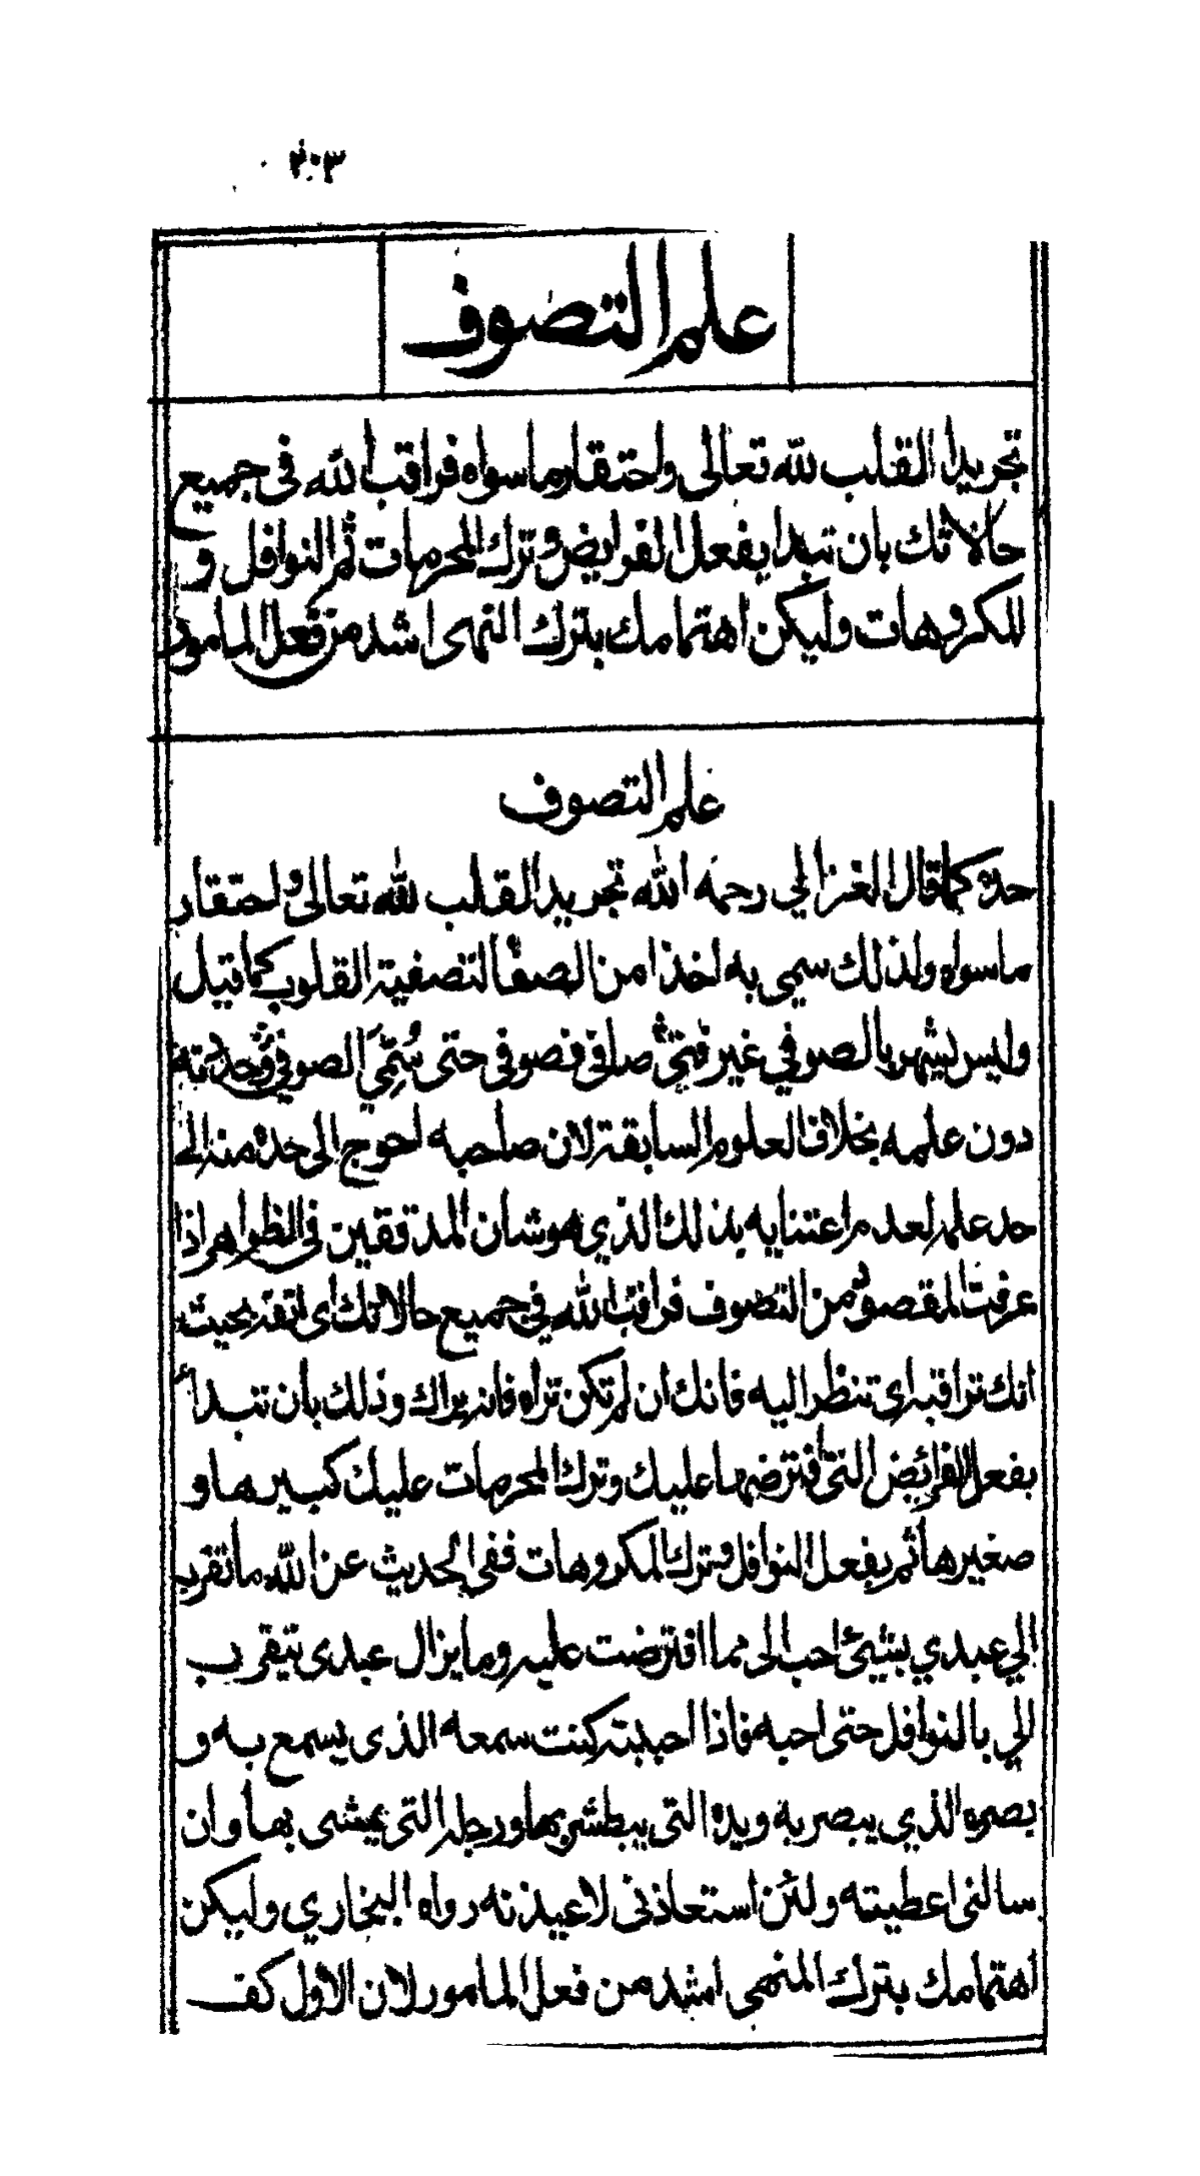 ٢٠٣
علم التصوف
تجريد القلب لله تعالى واحتقار ما سواه فراقب الله فى جميع
حالاتك بان تبدا بفعل الفرايض وترك المحرمات ثم النوافل و
المكروهات وليكن اهتمامك بترك النهى اشد من فعل المامور
علم التصوف
حده كما قال الغزالي رحمه الله تجريد القلب لله تعالى واحتقار
ما سواه ولذلك سمي به اخذا من الصفا لتصفية القلوب كما قيل
وليس يشهر بالصوفي غير فتى صافى فصوفى حتى سُمِّيَ الصوفي وحديته
دون علمه بخلاف العلوم السابقة لان صاحبه احوج الى حده منه الى
حد علم لعدم اعتنايه بذلك الذي هو شان المدققين فى الظواهر اذا
عرفت المقصود من التصوف فراقب الله في جميع حالاتك اى اتقه بحيث
انك تراقبه اى تنظر اليه فانك ان لم تكن تراه فانه يراك وذلك بان تبدأ
بفعل الفرائض التى افترضها عليك وترك المحرمات عليك كبيرها و
صغيرها ثم بفعل النوافل وترك المكروهات ففى الحديث عن الله ما تقرب
الي عبدي بشيئ احب الى مما افترضت عليه وما يزال عبدى يتقرب
الي بالنوافل حتى احبه فاذا احببته كنت سمعه الذى يسمع به و
بصره الذي يبصر به ويده التى يبطش بها ورجله التى يمشى بها وان
سالنى اعطيته ولئن استعاذنى لاعيذنه رواه البخاري وليكن
اهتمامك بترك المنهى اشد من فعل المامور لان الاول كف